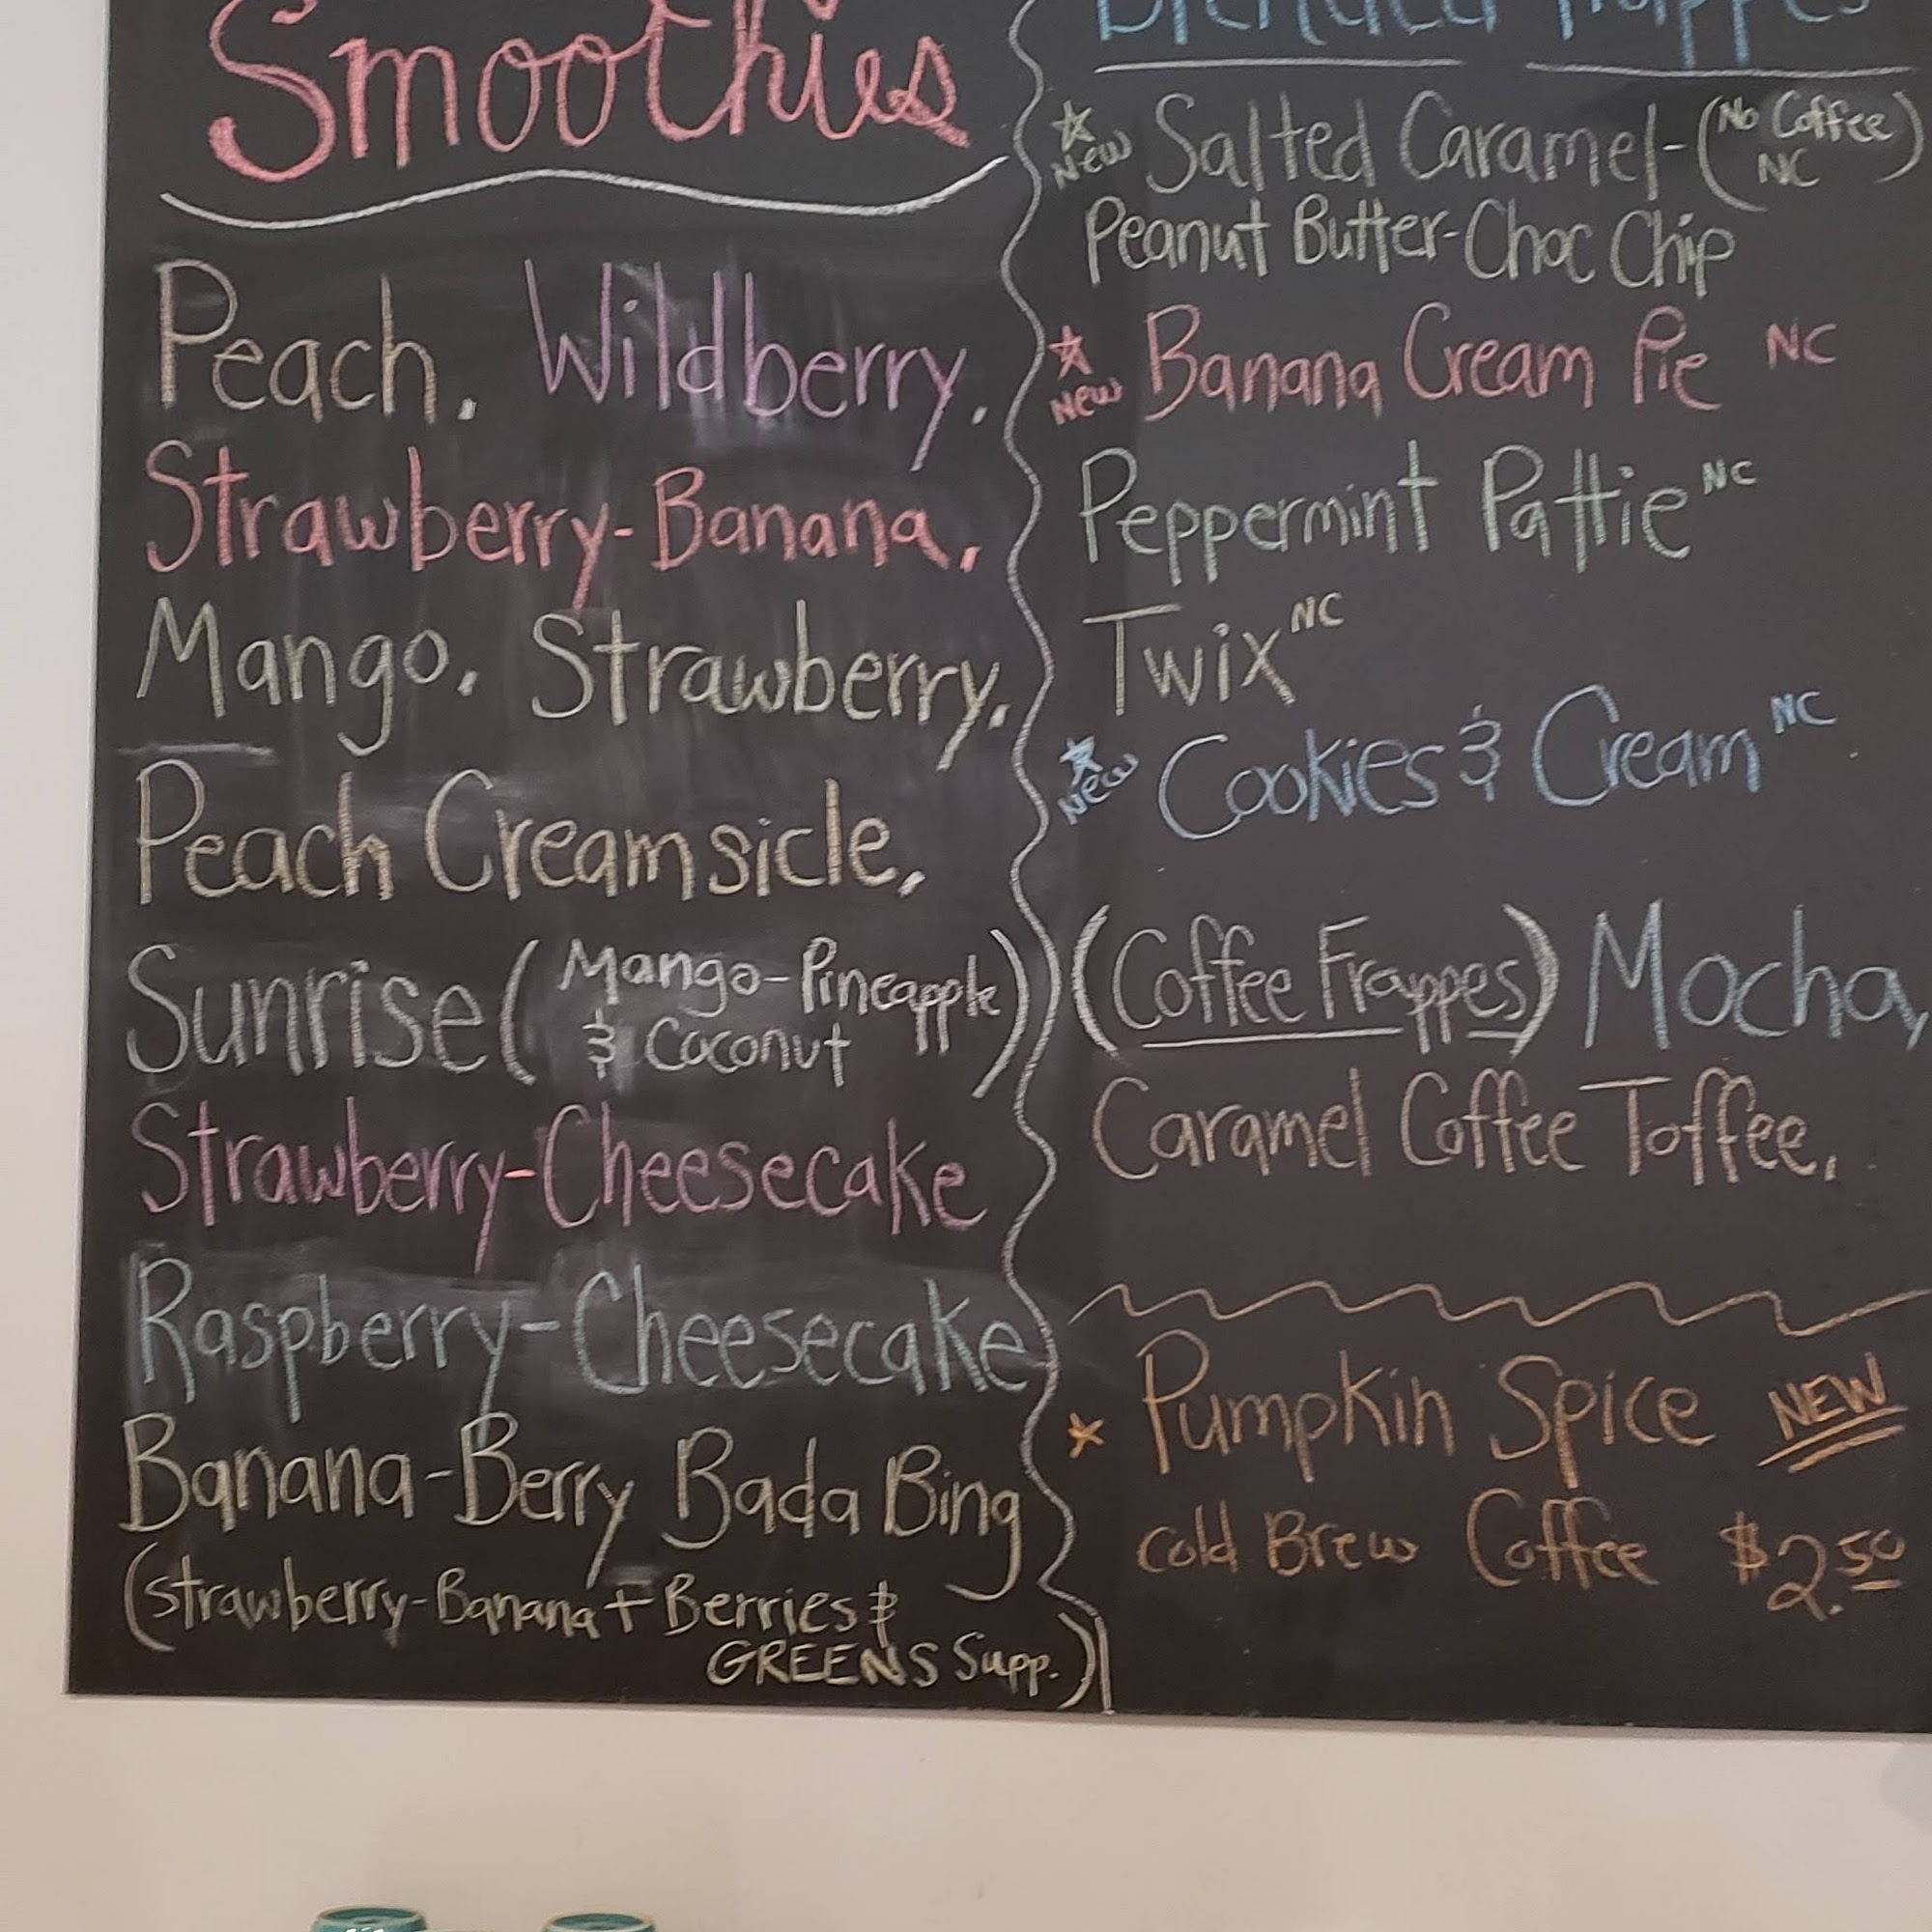 Smoothies
Peach, Wildberry,
Strawberry-Banana,
Mango, Strawberry,
Peach Creamsicle,
Sunrise (Mango-Pineapple
& Coconut)
Strawberry-Cheesecake
Raspberry-Cheesecake
Banana-Berry Bada Bing
(Strawberry-Banana + Berries &
GREENS Supp.)
Blended Frappes
New Salted Caramel- (No Coffee
NC)
Peanut Butter-Choc Chip
New Banana Cream Pie NC
Peppermint Pattie NC
Twix NC
New Cookies & Cream NC
(Coffee Frappes) Mocha,
Caramel Coffee Toffee,
* Pumpkin Spice NEW
Cold Brew Coffee $2.50